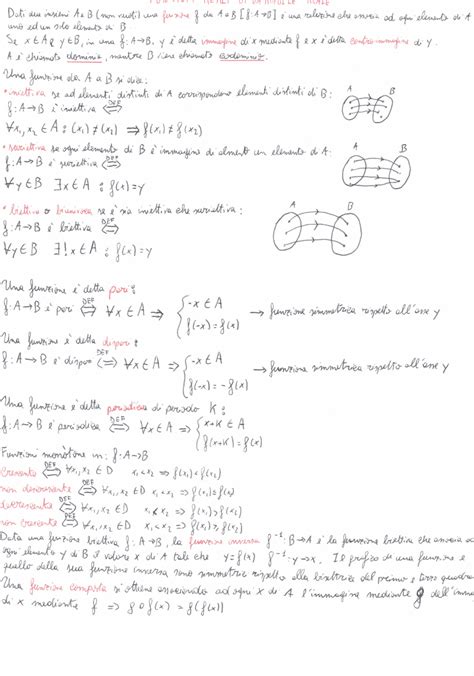 FUNZIONI REALI DI VARIABILE REALE
Dati due insiemi A e B (non vuoti) una funzione f da A a B [f:A→B] è una relazione che associa ad ogni elemento di A
uno ed un solo elemento di B
Se x ∈ A e y ∈ B, in una f:A→B, y è detta immagine di x mediante f e x è detta contro-immagine di y.
A è chiamato dominio, mentre B viene chiamato codominio.
Una funzione da A a B si dice:
• iniettiva se ad elementi distinti di A corrispondono elementi distinti di B:
f:A→B è iniettiva ⇔ DEF
∀x₁,x₂ ∈ A : (x₁) ≠ (x₂) ⇒ f(x₁) ≠ f(x₂)
A B
• suriettiva se ogni elemento di B è immagine di almeno un elemento di A:
f:A→B è suriettiva ⇔ DEF
∀y∈B ∃x∈A : f(x)=y
A B
• biettiva o biunivoca se è sia iniettiva che suriettiva:
f:A→B è biettiva ⇔ DEF
∀y∈B ∃!x∈A : f(x)=y
A B
Una funzione è detta pari:
f:A→B è pari ⇔ DEF ∀x∈A ⇒ { -x∈A
f(-x)=f(x) → funzione simmetrica rispetto all'asse y
Una funzione è detta dispari:
f:A→B è dispari ⇔ DEF ∀x∈A ⇒ { -x∈A
f(-x)=-f(x) → funzione simmetrica rispetto all'asse y
Una funzione è detta periodica di periodo K:
f:A→B è periodica ⇔ DEF ∀x∈A ⇒ { x+K∈A
f(x+K)=f(x)
Funzioni monotòne in: f:A→B
crescente ⇔ DEF ∀x₁,x₂∈D x₁<x₂ ⇒ f(x₁)<f(x₂)
non decrescente ⇔ DEF ∀x₁,x₂∈D x₁<x₂ ⇒ f(x₁)≤f(x₂)
decrescente ⇔ DEF ∀x₁,x₂∈D x₁<x₂ ⇒ f(x₁)>f(x₂)
non crescente ⇔ DEF ∀x₁,x₂∈D x₁<x₂ ⇒ f(x₁)≥f(x₂)
Data una funzione biettiva f:A→B, la funzione inversa f⁻¹:B→A è la funzione biettiva che associa a
ogni elemento y di B il valore x di A tale che y=f(x) f⁻¹:y→x. Il grafico di una funzione e
quello della sua funzione inversa sono simmetrici rispetto alla bisettrice del primo e terzo quadra
Una funzione composta si ottiene associando ad ogni x di A l'immagine mediante g dell'imma
di x mediante f ⇒ g∘f(x) = g(f(x))